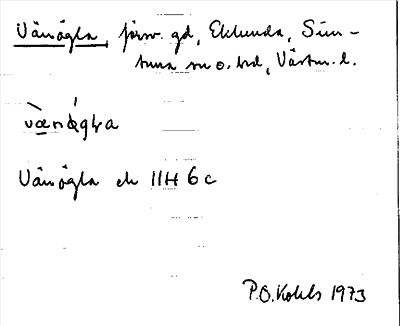 Vänögla, försv. gd, Eklunda, Sim-
tuna sn o. hd, Västm. l.
vænögla
Vänögla ek 11H 6c
P.O. Kohls 1973